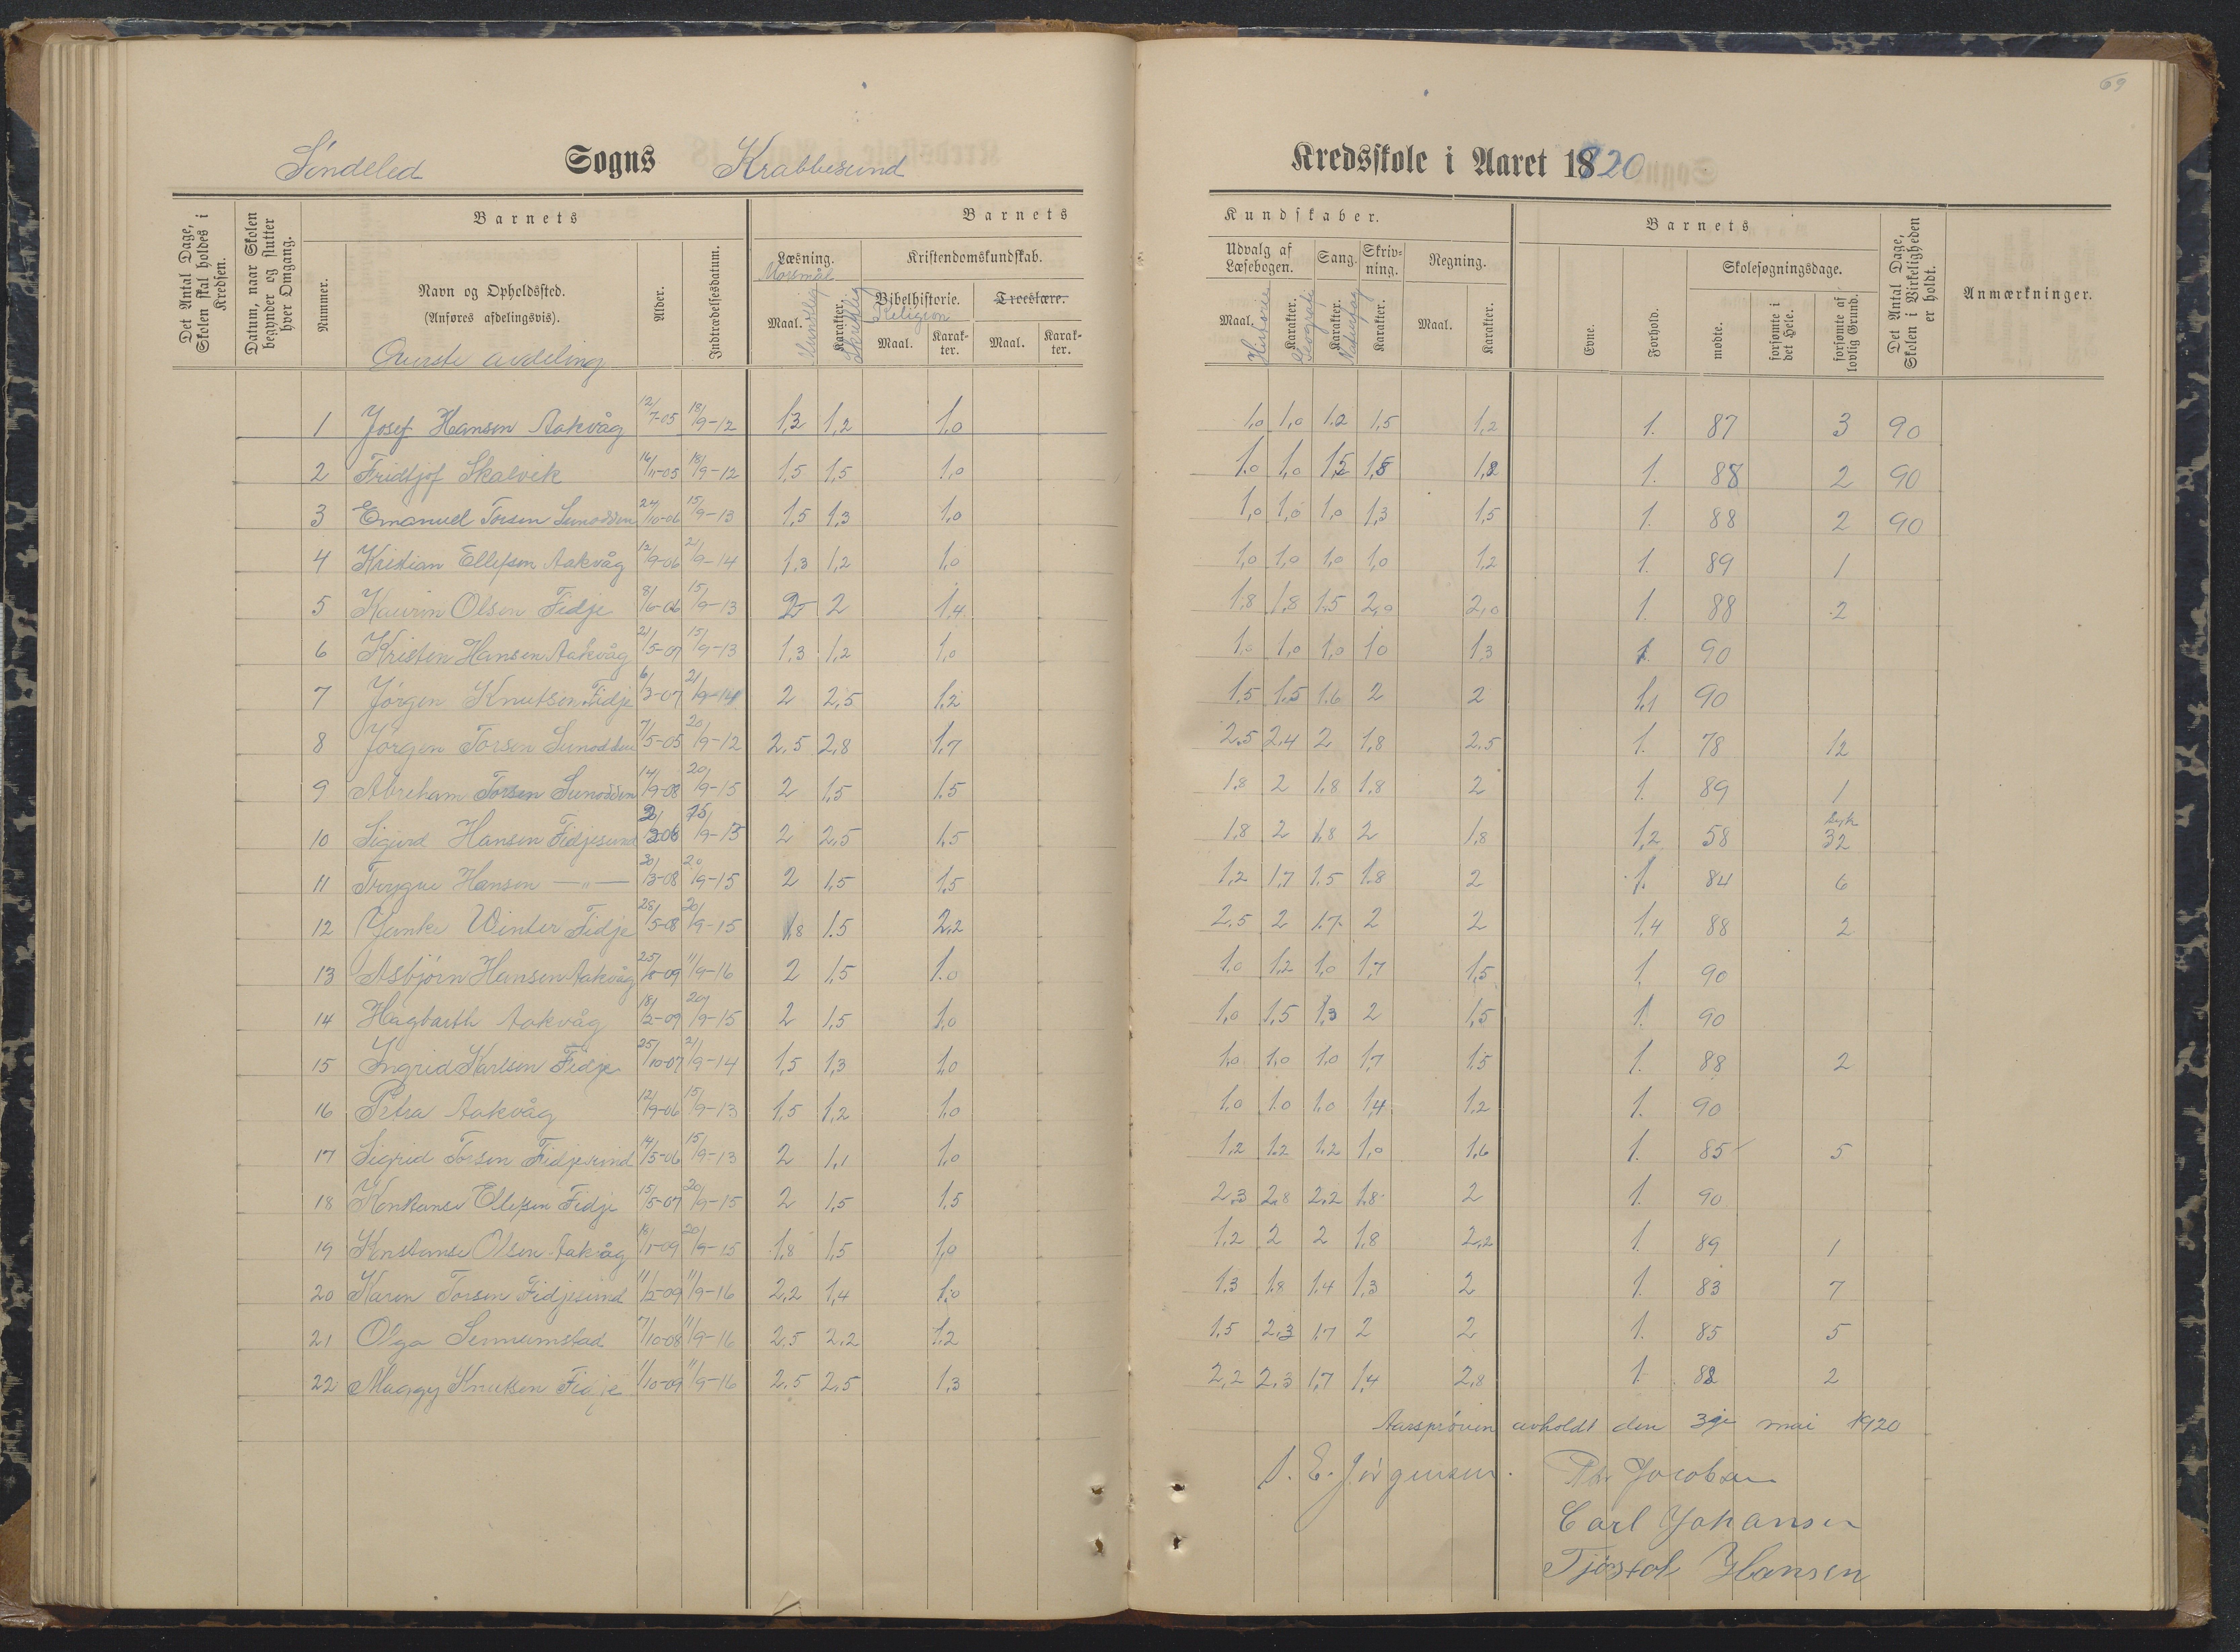 69
Söndeled Sogns Krabbesund Kredsskole i Aaret 1920
Det Antal Dage, Skolen skal holdes i Kredsen.
Datum, naar Skolen begynder og slutter hver Omgang.
Barnets
Nummer.
Navn og Opholdssted.
(Anføres afdelingsvis).
Øverste avdeling
Alder.
Indtrædelsesdatum.
Barnets
Læsning.
Morsmål
Maal.
Mundtlig
Karakter.
Skriftlig
Kristendomskundskab.
Bibelhistorie.
Religion
Maal.
Karakter.
Troeslære.
Maal.
Karakter.
Kundskaber.
Udvalg af Læsebogen.
Maal.
Historie
Karakter.
Geografi
Sang.
Karakter.
Naturfag
Skrivning.
Karakter.
Regning.
Maal.
Karakter.
Barnets
Evne.
Forhold.
Skolesøgningsdage.
mødte.
forsømte i det Hele.
forsømte af lovlig Grund.
Det Antal Dage, Skolen i Virkeligheden er holdt.
Anmærkninger.
1 Josef Hansen Aakvåg 12/7-05 18/9-12 1,3 1,2 1,0 1,0 1,0 1.2 1,5 1,2 1. 87 3 90
2 Fridtjof Skalvik 14/11-05 18/9-12 1,5 1,5 1,0 1.0 1,0 1,2 1,8 1,2 1. 88 2 90
3 Emanuel Torsen Sunodden 24/10-06 15/9-13 1,5 1,3 1,0 1,0 1,0 1,0 1,3 1,5 1. 88 2 90
4 Kristian Ellefsen Aakvåg 12/9-06 21/9-14 1,3 1,2 1,0 1,0 1,0 1,0 1,0 1,2 1. 89 1
5 Kaurin Olsen Fidje 8/6-06 15/9-13 2 2 1,4 1,8 1,8 1,5 2,0 2,0 1. 88 2
6 Kristen Hansen Aakvåg 21/5-07 15/9-13 1,3 1,2 1,0 1,0 1,0 1,0 1,0 1,3 1. 90
7 Jörgen Knutsen Fidje 6/3-07 21/9-14 2 2,5 1,2 1,5 1,5 1.6 2 2 1,1 90
8 Jörgen Torsen Sunodden 7/5-05 20/9-12 2.5 2,8 1,7 2,5 2,4 2 1,8 2.5 1. 78 12
9 Abreham Torsen Sunodden 14/9-08 20/9-15 2 1,5 1.5 1.8 2 1.8 1.8 2 1. 89 1
10 Sigurd Hansen Fidjesund 15/9-13 2 2,5 1,5 1,8 2 1,8 2 1,8 1,2 58 syk 32
11 Trygve Hansen —"— 30/3-08 20/9-15 2 1,5 1,5 1,2 1,7 1.5 1.8 2 1. 84 6
12 Janke Winter Fidje 28/5-08 20/9-15 1,8 1.5 2,2 2.5 2 1.7 2 2 1,4 88 2
13 Asbjörn Hansen Aakvåg 11/9-16 2 1,5 1.0 1,0 1,2 1,0 1,7 1,5 1. 90
14 Hagbarth Aakvåg 18/2-09 20/9-15 2 1,5 1,0 1,0 1,5 1,3 2 1,5 1. 90
15 Ingrid Karlsen Fidje 25/10-07 21/9-14 1,5 1,3 1,0 1,0 1,0 1,0 1,7 1,5 1. 88 2
16 Petra Aakvåg 12/9-06 15/9-13 1,5 1,2 1,0 1.0 1.0 1,0 1,4 1.2 1. 90
17 Sigrid Torsen Fidjesund 14/5-06 15/9-13 2 1,1 1,0 1,2 1.2 1.2 1,0 1,6 1. 85 5
18 Konstanse Ellefsen Fidje 15/5-07 20/9-15 2 1,5 1.5 2,3 2,8 2,2 1,8 2 1. 90
19 Konstanse Olsen Aakvåg 18/1-09 20/9-15 1,8 1,5 1,0 1,2 2 2 1,8 2,2 1. 89 1
20 Karen Torsen Fidjesund 11/2-09 11/9-16 2,2 1,4 1,0 1,3 1,8 1,4 1,3 2 1. 83 7
21 Olga Sennumstad 7/10-08 11/9-16 2,5 2,2 1,2 1,5 2,3 1,7 2 2 1. 85 5
22 Maagy Knutsen Fidje 1/10-09 11/9-16 2.5 2,5 1,3 2,2 2,3 1,7 1,4 2,8 1. 88 2
Aarspröven avholdt den 3dje mai 1920
S. E. Jörgensen. Th. Jacobsen
Carl Johansen
Tjøstol Hansen